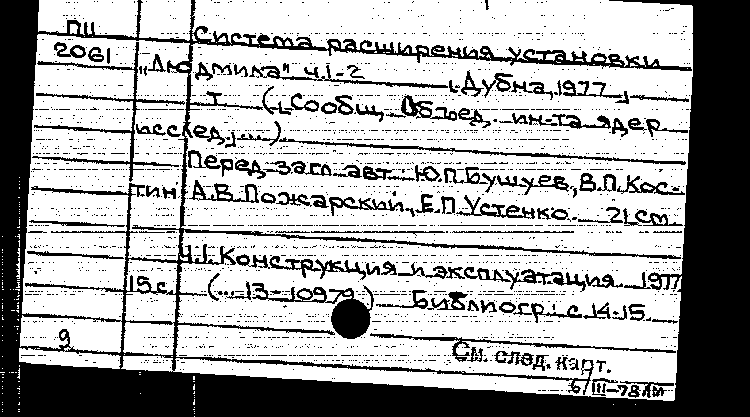 ПII
2061
Система расширения установки
„Людмила" ч.1-2 [Дубна, 1977]
т. ([Сообщ. Объед. ин-та ядер.
исслед.; ...)
Перед загл. авт.: Ю.П.Бушуев, В.П.Кос-
тин, А.В.Пожарский, Е.П.Устенко. 21 см
Ч.1. Конструкция и эксплуатация. 1977
15 с. (... 13-10979) Библиогр.: с. 14-15.
9
См. след. карт.
6/III-78